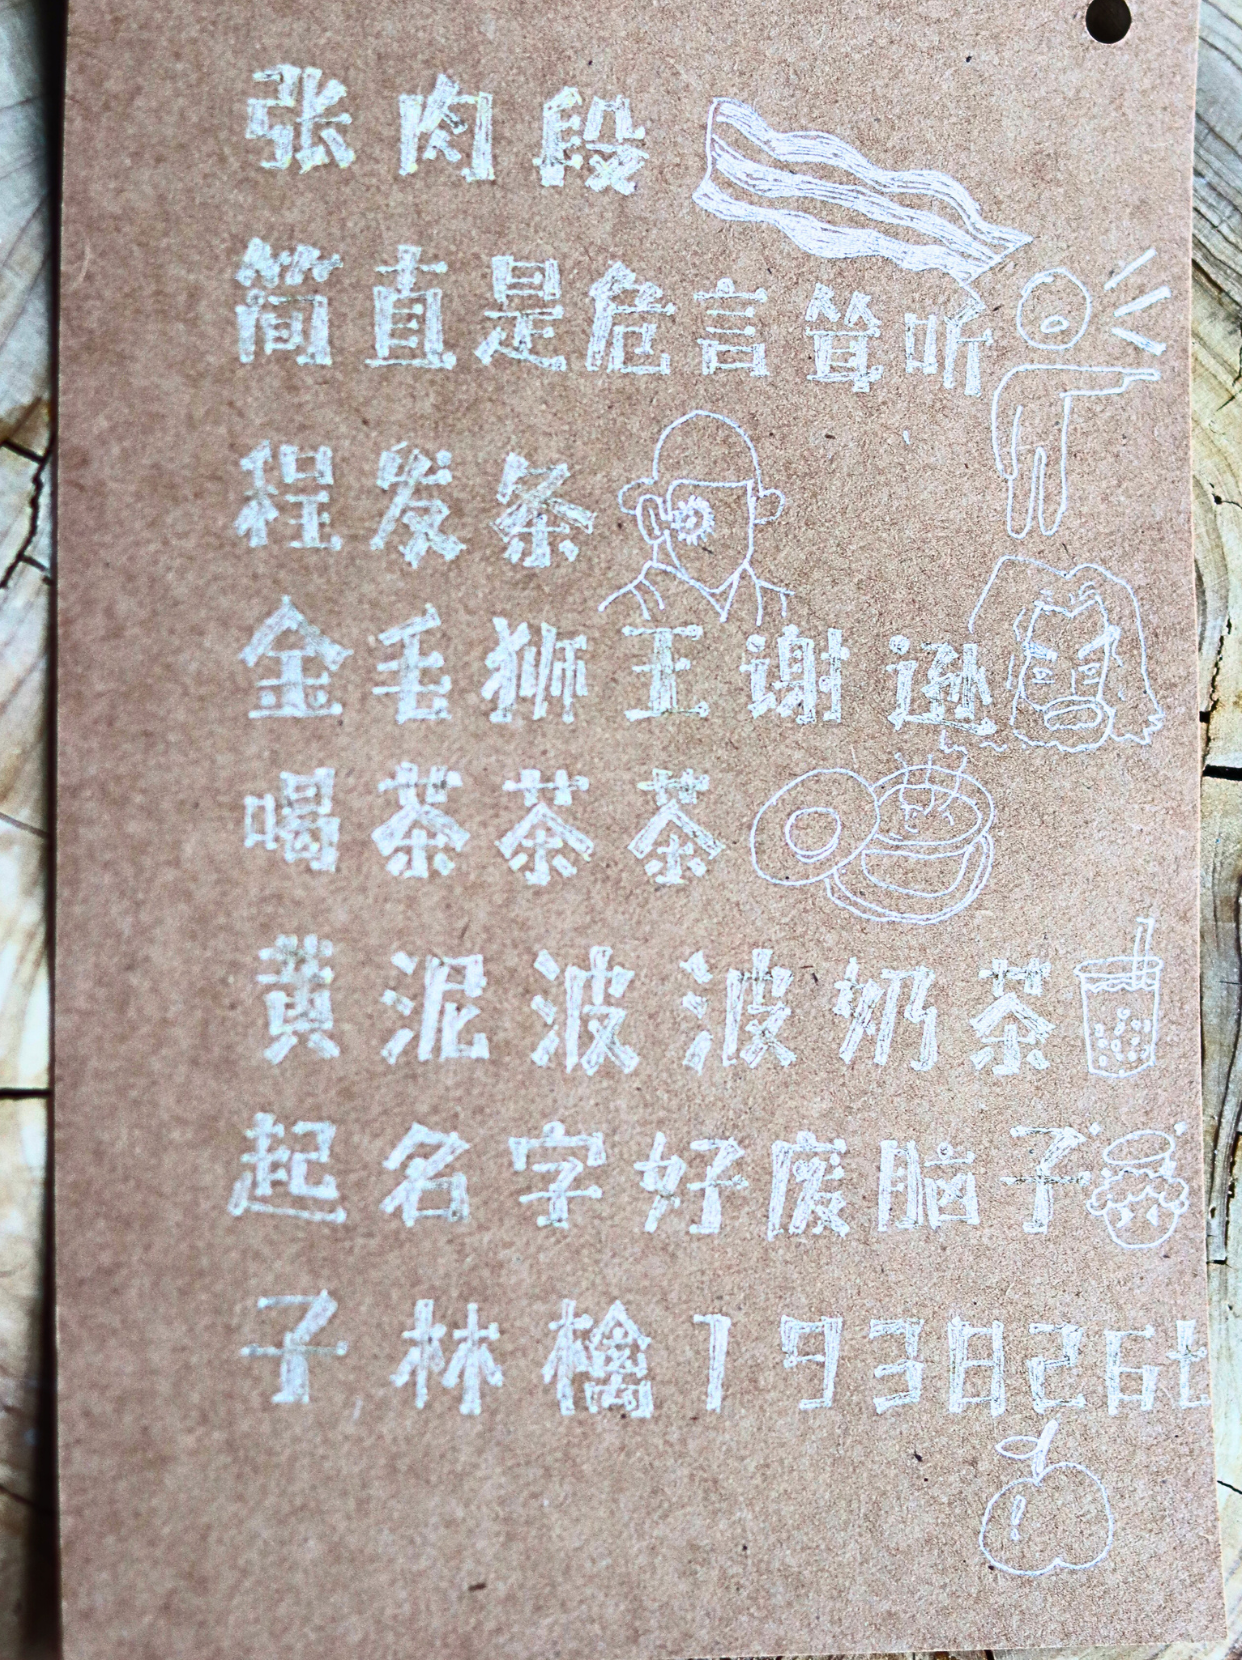 张肉段
简直是危言耸听
程发条
金毛狮王谢逊
喝茶茶茶
黄泥波波奶茶
起名字好废脑子
子林檎193826t